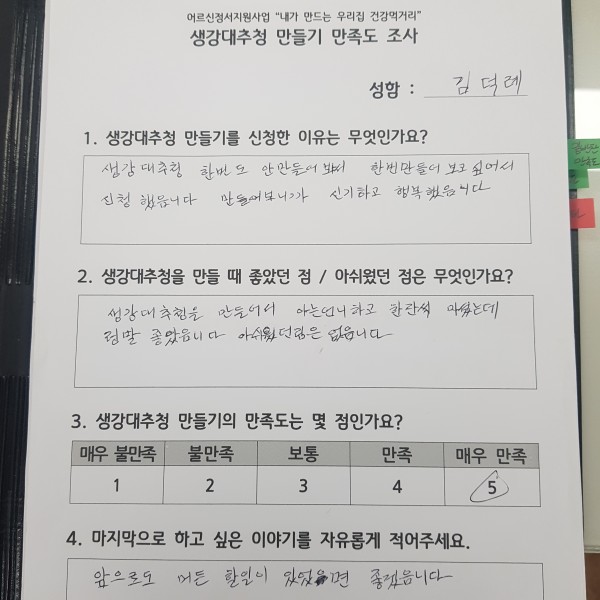 어르신정서지원사업 "내가 만드는 우리집 건강먹거리"
생강대추청 만들기 만족도 조사
성함 : 김덕례
1. 생강대추청 만들기를 신청한 이유는 무엇인가요?
생강대추청 한번도 안만들어봐서 한번만들어보고싶어서
신청했읍니다 만들어보니가 신기하고 행복했읍니다
2. 생강대추청을 만들 때 좋았던 점 / 아쉬웠던 점은 무엇인가요?
생강대추청을 만들어서 아는언니하고 한잔씩 마셨는데
정말 좋았읍니다 아쉬웠던점은 없읍니다
3. 생강대추청 만들기의 만족도는 몇 점인가요?
매우 불만족 불만족 보통 만족 매우 만족
1 2 3 4 5
4. 마지막으로 하고 싶은 이야기를 자유롭게 적어주세요.
앞으로도 머든 할일이 있었으면 좋겠읍니다